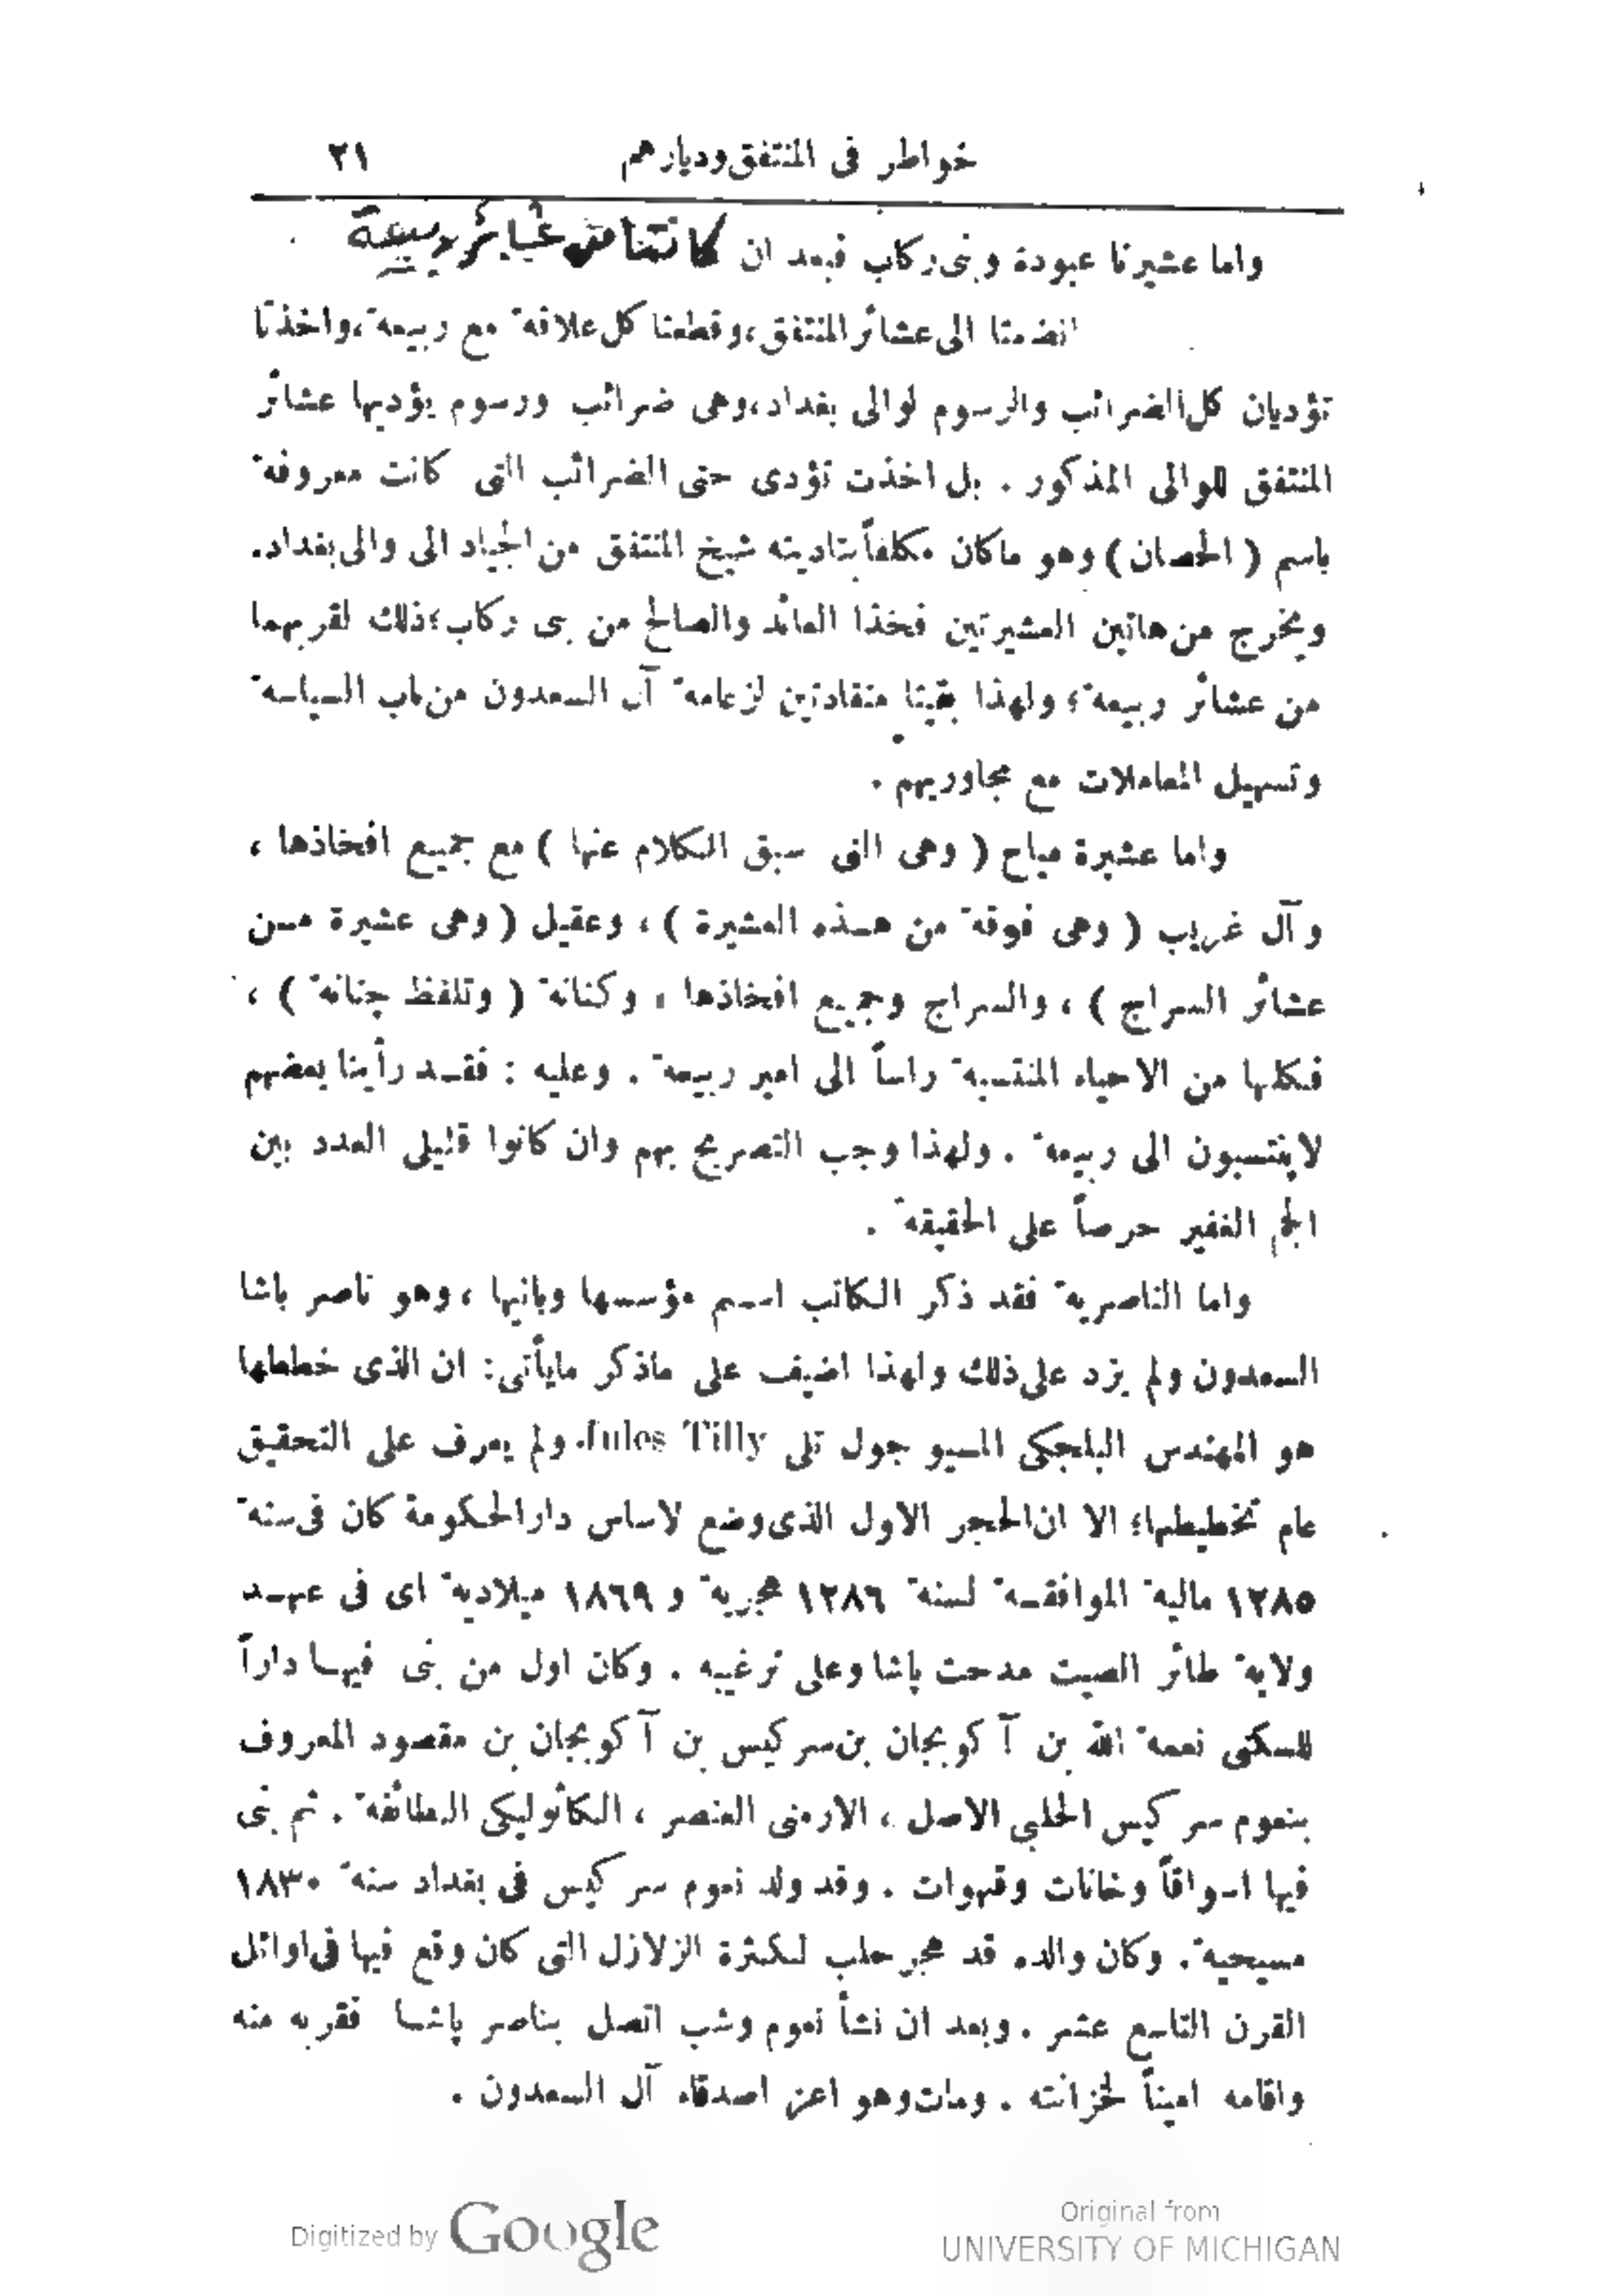 خواطر فى المنتفق وديارهم ٢١
واما عشيرتا عبودة وبنى ركاب فبعد ان كانتا من عشائر ربيعة
انضمتا الى عشائر المنتفق، وقطعتا كل علاقة مع ربيعة، واخذتا
تؤديان كل الضرائب والرسوم لوالى بغداد، وهى ضرائب ورسوم يؤديها عشائر
المنتفق للوالى المذكور . بل اخذت تؤدى حتى الضرائب التى كانت معروفة
باسم ( الحصان ) وهو ما كان مكلفاً بتاديته شيخ المنتفق من الجياد الى والى بغداد.
ويخرج من هاتين العشيرتين فخذا العائد والصالح من بى ركاب؛ ذلك لقربهما
من عشائر ربيعة؛ ولهذا بقيتا منقادتين لزعامة آل السعدون من باب السياسة
وتسهيل المعاملات مع مجاوريهم .
واما عشيرة مياح ( وهى التى سبق الكلام عنها ) مع جميع افخاذها ،
وآل غريب ( وهى فوقة من هذه العشيرة ) ، وعقيل ( وهى عشيرة من
عشائر السراج ) ، والسراج وجميع افخاذها ، وكنانة ( وتلفظ چنانة ) ،
فكلها من الاحياء المنتسبة راساً الى امير ربيعة . وعليه : فقد رأينا بعضهم
لاينتسبون الى ربيعة . ولهذا وجب التصريح بهم وان كانوا قليلى العدد بين
الجم الغفير حرصاً على الحقيقة .
واما الناصرية فقد ذكر الكاتب اسم مؤسسها وبانيها ، وهو ناصر باشا
السعدون ولم يزد على ذلك ولهذا اضيف على ماذكر مايأتى: ان الذى خططها
هو المهندس البلجكى المسيو جول تلى Jules Tilly. ولم يعرف على التحقيق
عام تخطيطها؛ الا ان الحجر الاول الذى وضع لاساس دار الحكومة كان فى سنة
١٢٨٥ مالية الموافقة لسنة ١٢٨٦ هجرية و ١٨٦٩ ميلادية اى فى عهد
ولاية طائر الصيت مدحت پاشا وعلى ترغيبه . وكان اول من بنى فيها داراً
للسكنى نعمة الله بن آكوبجان بن سركيس بن آكوبجان بن مقصود المعروف
بنعوم سركيس الحلبي الاصل ، الارمنى العنصر ، الكاثوليكى الطائفة . ثم بنى
فيها اسواقاً وخانات وقهوات . وقد ولد نعوم سركيس فى بغداد سنة ١٨٣٠
مسيحية . وكان والده قد هجر حلب لكثرة الزلازل التى كان وقع فيها فى اوائل
القرن التاسع عشر . وبعد ان نشأ نعوم وشب اتصل بناصر پاشا فقربه منه
واقامه اميناً لخزانته . ومات وهو اعز اصدقاء آل السعدون .
Digitized by Google
Original from
UNIVERSITY OF MICHIGAN